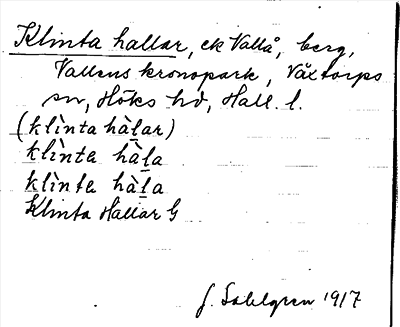 Klinta hallar, ek Vallå, berg,
Vallens kronopark, Växtorps
sn, Höks hd, Hall. l.
(klìnta hàl̠ar)
klìnte hàl̠a
klìnte hàl̠a
Klinta Hallar G
J. Sahlgren 1917